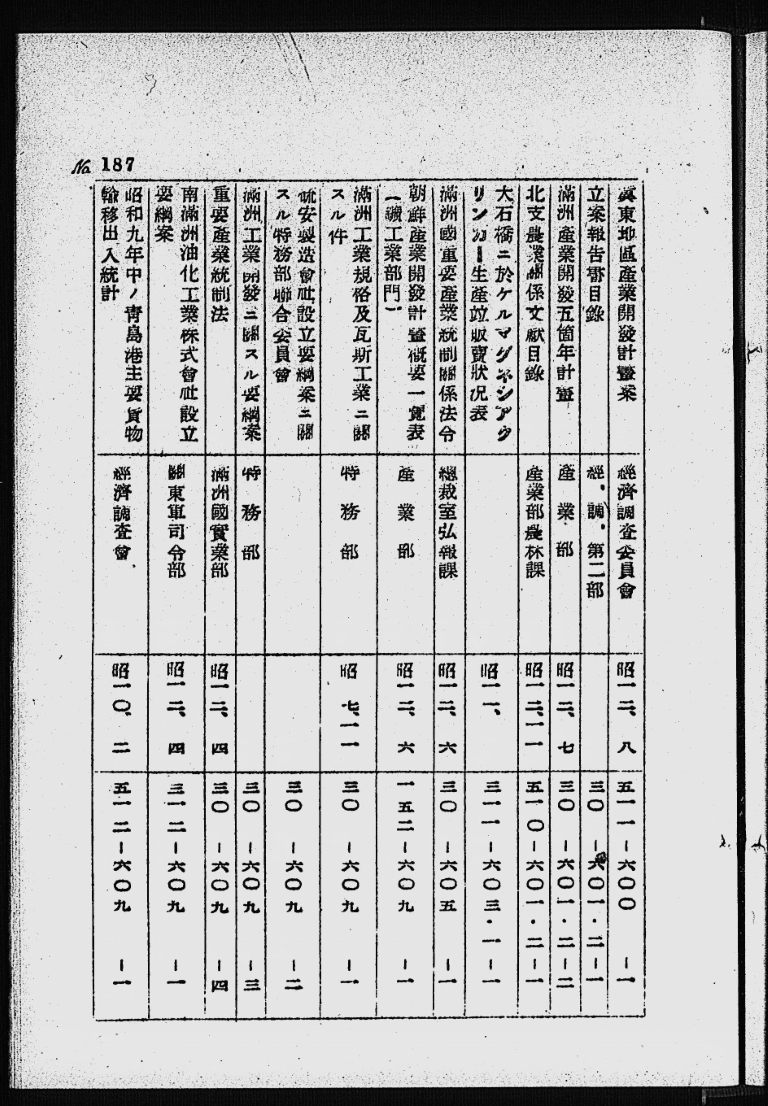 No. 187
冀東地區産業開發計畫案
經濟調査委員會
昭一二、八
五一一ー六〇〇ー一
立案報告書目錄
經、調、第二部
三〇ー六〇一・二ー一
滿洲産業開發五箇年計畫
産業部
昭一二、七
三〇ー六〇一・二ー二
北支農業關係文獻目錄
産業部農林課
昭一二、一一
五一〇ー六〇一・二ー一
大石橋ニ於ケルマグネシアク
リンカー生産竝販賣狀況表
昭一一、
三一一ー六〇三・一ー一
滿洲國重要産業統制關係法令
總裁室弘報課
昭一二、六
三〇ー六〇五ー一
朝鮮産業開發計畫概要一覽表
(礦工業部門)
産業部
昭一二、六
一五二ー六〇九ー一
滿洲工業規格及瓦斯工業ニ關
スル件
特務部
昭七、一一
三〇ー六〇九ー一
硫安製造會社設立要綱案ニ關
スル特務部聯合委員會
三〇ー六〇九ー二
滿洲工業開發ニ關スル要綱案
特務部
三〇ー六〇九ー三
重要産業統制法
滿洲國實業部
昭一二、四
三〇ー六〇九ー四
南滿洲油化工業株式會社設立
要綱案
關東軍司令部
昭一二、四
三一二ー六〇九ー一
昭和九年中ノ靑島港主要貨物
輸移出入統計
經濟調査會
昭一〇、二
五一二ー六〇九ー一